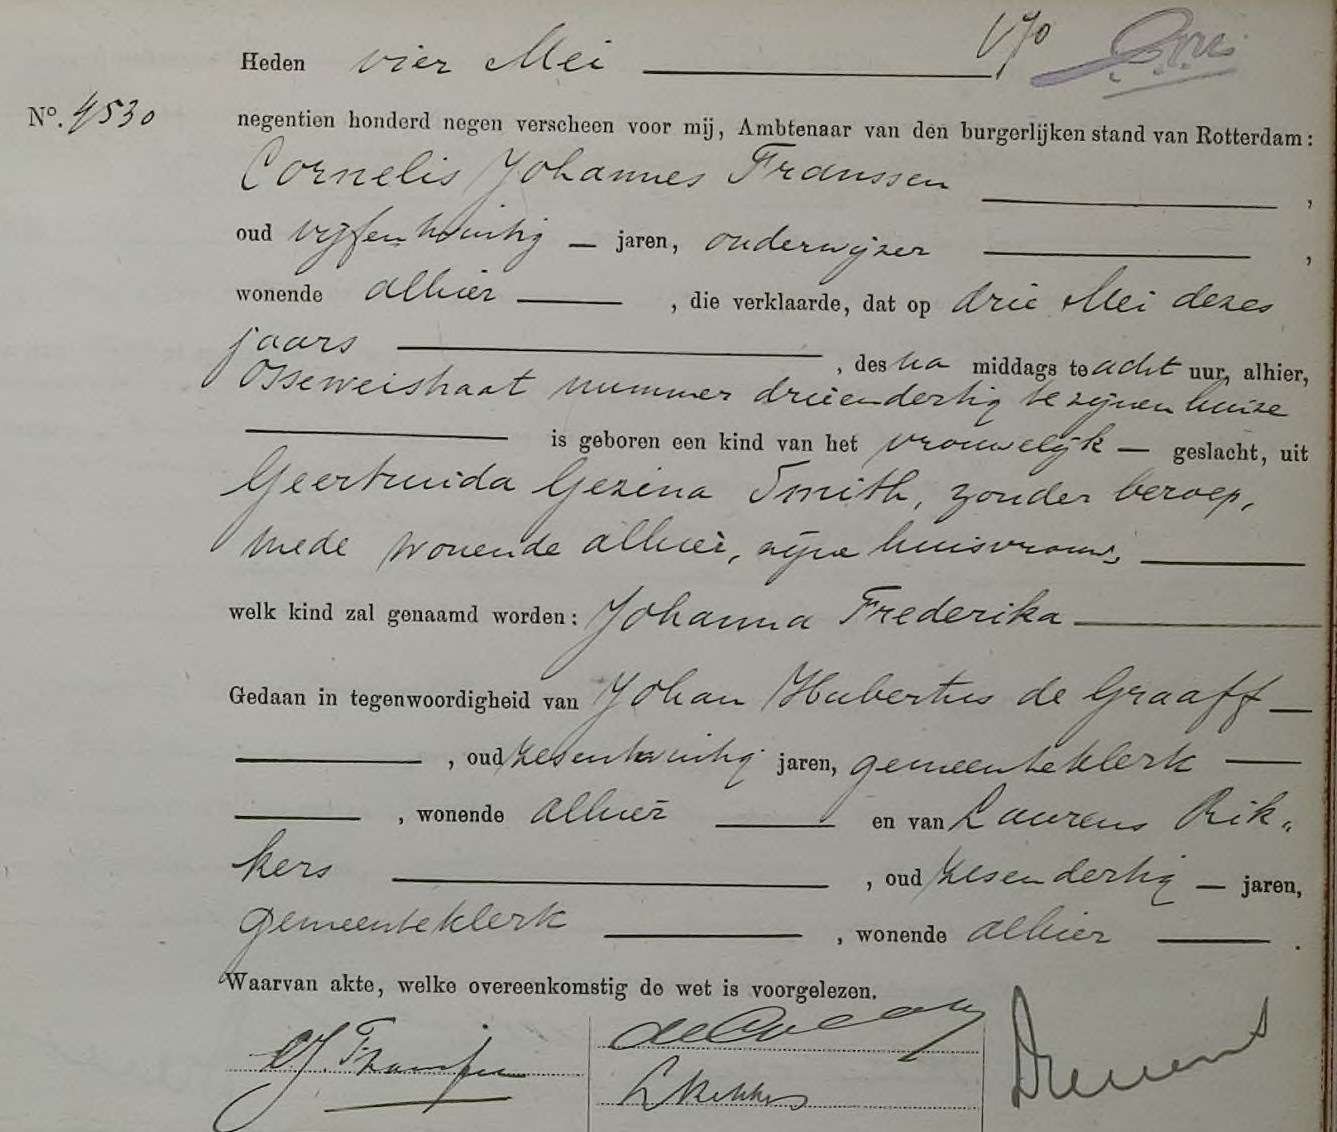 Heden vier Mei
No. 4530 negentien honderd negen verscheen voor mij, Ambtenaar van den burgerlijken stand van Rotterdam:
Cornelis Johannes Franssen ,
oud vijfentwintig – jaren, onderwijzer ,
wonende alhier , die verklaarde, dat op drie Mei dezes
jaars , des na middags te acht uur, alhier,
straat nummer drieendertig te zijnen huize
is geboren een kind van het vrouwelijk – geslacht, uit
Geertruida Gezina Smith, zonder beroep,
mede wonende alhier, zijne huisvrouw,
welk kind zal genaamd worden: Johanna Frederika
Gedaan in tegenwoordigheid van Johan Hubertus de Graaff
, oud zesentwintig jaren, gemeenteklerk
, wonende alhier en van Laurens Rik„
kers , oud zesendertig – jaren,
gemeenteklerk , wonende alhier .
Waarvan akte, welke overeenkomstig de wet is voorgelezen.
CJ. Franssen
LRikkers